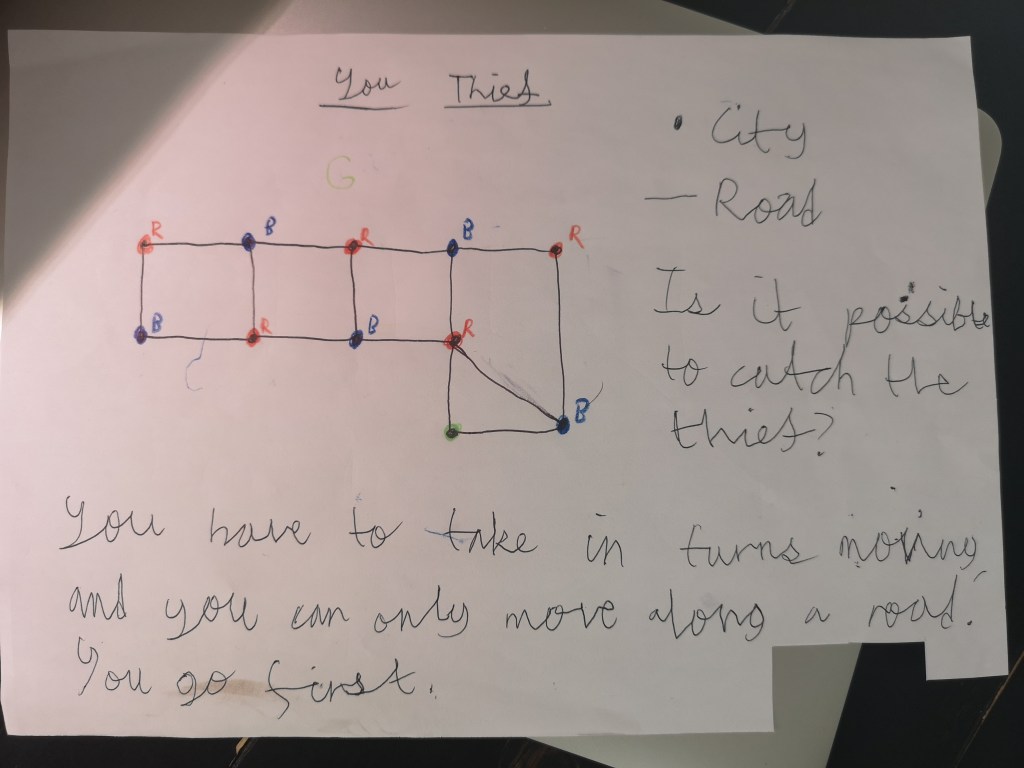 You Thief
• City
G
— Road
R B R B R
Is it possible
B R B R
C
to catch the
B
thief?
You have to take in turns moving,
and you can only move along a road.
You go first.